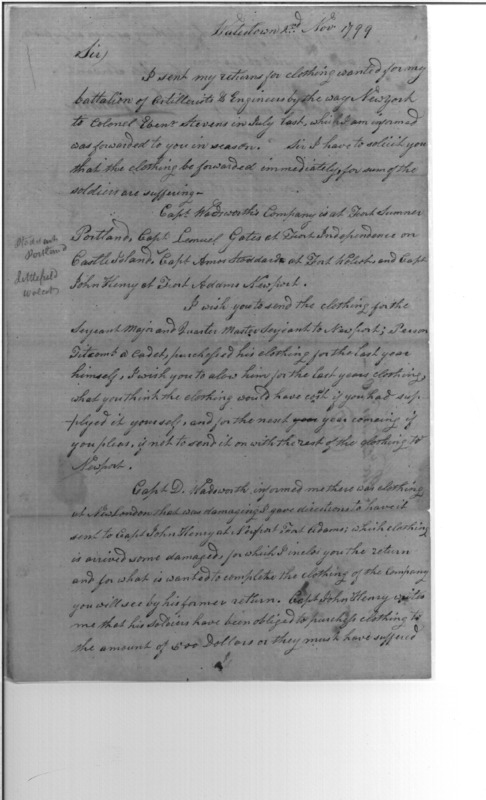 Nov 1799
Sir,
I sent my returns for clothing wanted for my
battalion of Artillerists & Engineers by the way New York
to Colonel Ebenr Stevens in July last, which I am informed
was forwarded to you in season. Sir I have to solicit you
that the clothing be forwarded immediately, for sum of the
soldiers are suffering—
Capt Wadsworth's Company is at Fort Sumner
Portland, Capt Lemuel Gates at Fort Independence on
Castle Island, Capt Amos Stoddard at Fort Wolcot, and Capt
John Henry at Fort Adams Newport.
Portland
Littlefield
Wolcot
I wish you to send the clothing for the
Serjeant Major and Quarter Master Serjeant to Newport; Pierson
Titcomb a Cadet, purchesed his clothing for the last year
himself, I wish you to alow him for the last years clothing,
what you think the clothing would have cost if you had sup-
plyed it yourself, and for the next year comeing if
you pleas, if not to send it on with the rest of the clothing to
Newport.
Capt D. Wadsworth informed me there was clothing
at New London that was damaging I gave directions to have it
sent to Capt John Henry at Newport Fort Adams; which clothing
is arrived some damaged, for which I inclos you the return
and for what is wanted to complete the clothing of the Company
you will see by his former return. Capt John Henry writes
me that his soldiers have been obliged to purchess clothing to
the amount of 500 Dollars or they must have suffered